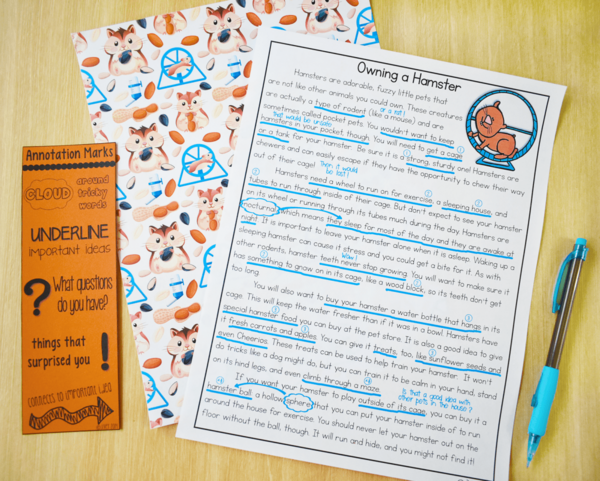 Annotation Marks
CLOUD around
tricky
words
UNDERLINE
important ideas
? What questions
do you have?
things that
surprised you !
connects to important idea
Owning a Hamster
Hamsters are adorable, fuzzy little pets that
are not like other animals you could own. These creatures
or a rat!
are actually a type of rodent (like a mouse) and are
sometimes called pocket pets. You wouldn't want to keep
That would be unsafe
hamsters in your pocket, though. You will need to get a cage
or a tank for your hamster. Be sure it is a strong, sturdy one! Hamsters are
chewers and can easily escape if they have the opportunity to chew their way
out of their cage!
Then it would
be lost!
Hamsters need a wheel to run on for exercise, a sleeping house, and
tubes to run through inside of their cage. But don't expect to see your hamster
on its wheel or running through its tubes much during the day. Hamsters are
nocturnal, which means they sleep for most of the day and they are awake at
night. It is important to leave your hamster alone when it is asleep. Waking up a
sleeping hamster can cause it stress and you could get a bite for it. As with
Wow!
other rodents, hamster teeth never stop growing. You will want to make sure it
has something to gnaw on in its cage, like a wood block, so its teeth don't get
too long.
You will also want to buy your hamster a water bottle that hangs in its
cage. This will keep the water fresher than if it was in a bowl. Hamsters have
special hamster food you can buy at the pet store. It is also a good idea to give
it fresh carrots and apples. You can give it treats, too, like sunflower seeds and
even Cheerios. These treats can be used to help train your hamster. It won't
do tricks like a dog might do, but you can train it to be calm in your hand, stand
on its hind legs, and even climb through a maze.
Is that a good idea with
other pets in the house?
If you want your hamster to play outside of its cage, you can buy it a
hamster ball, a hollow sphere that you can put your hamster inside of to run
around the house for exercise. You should never let your hamster out on the
floor without the ball, though. It will run and hide, and you might not find it!